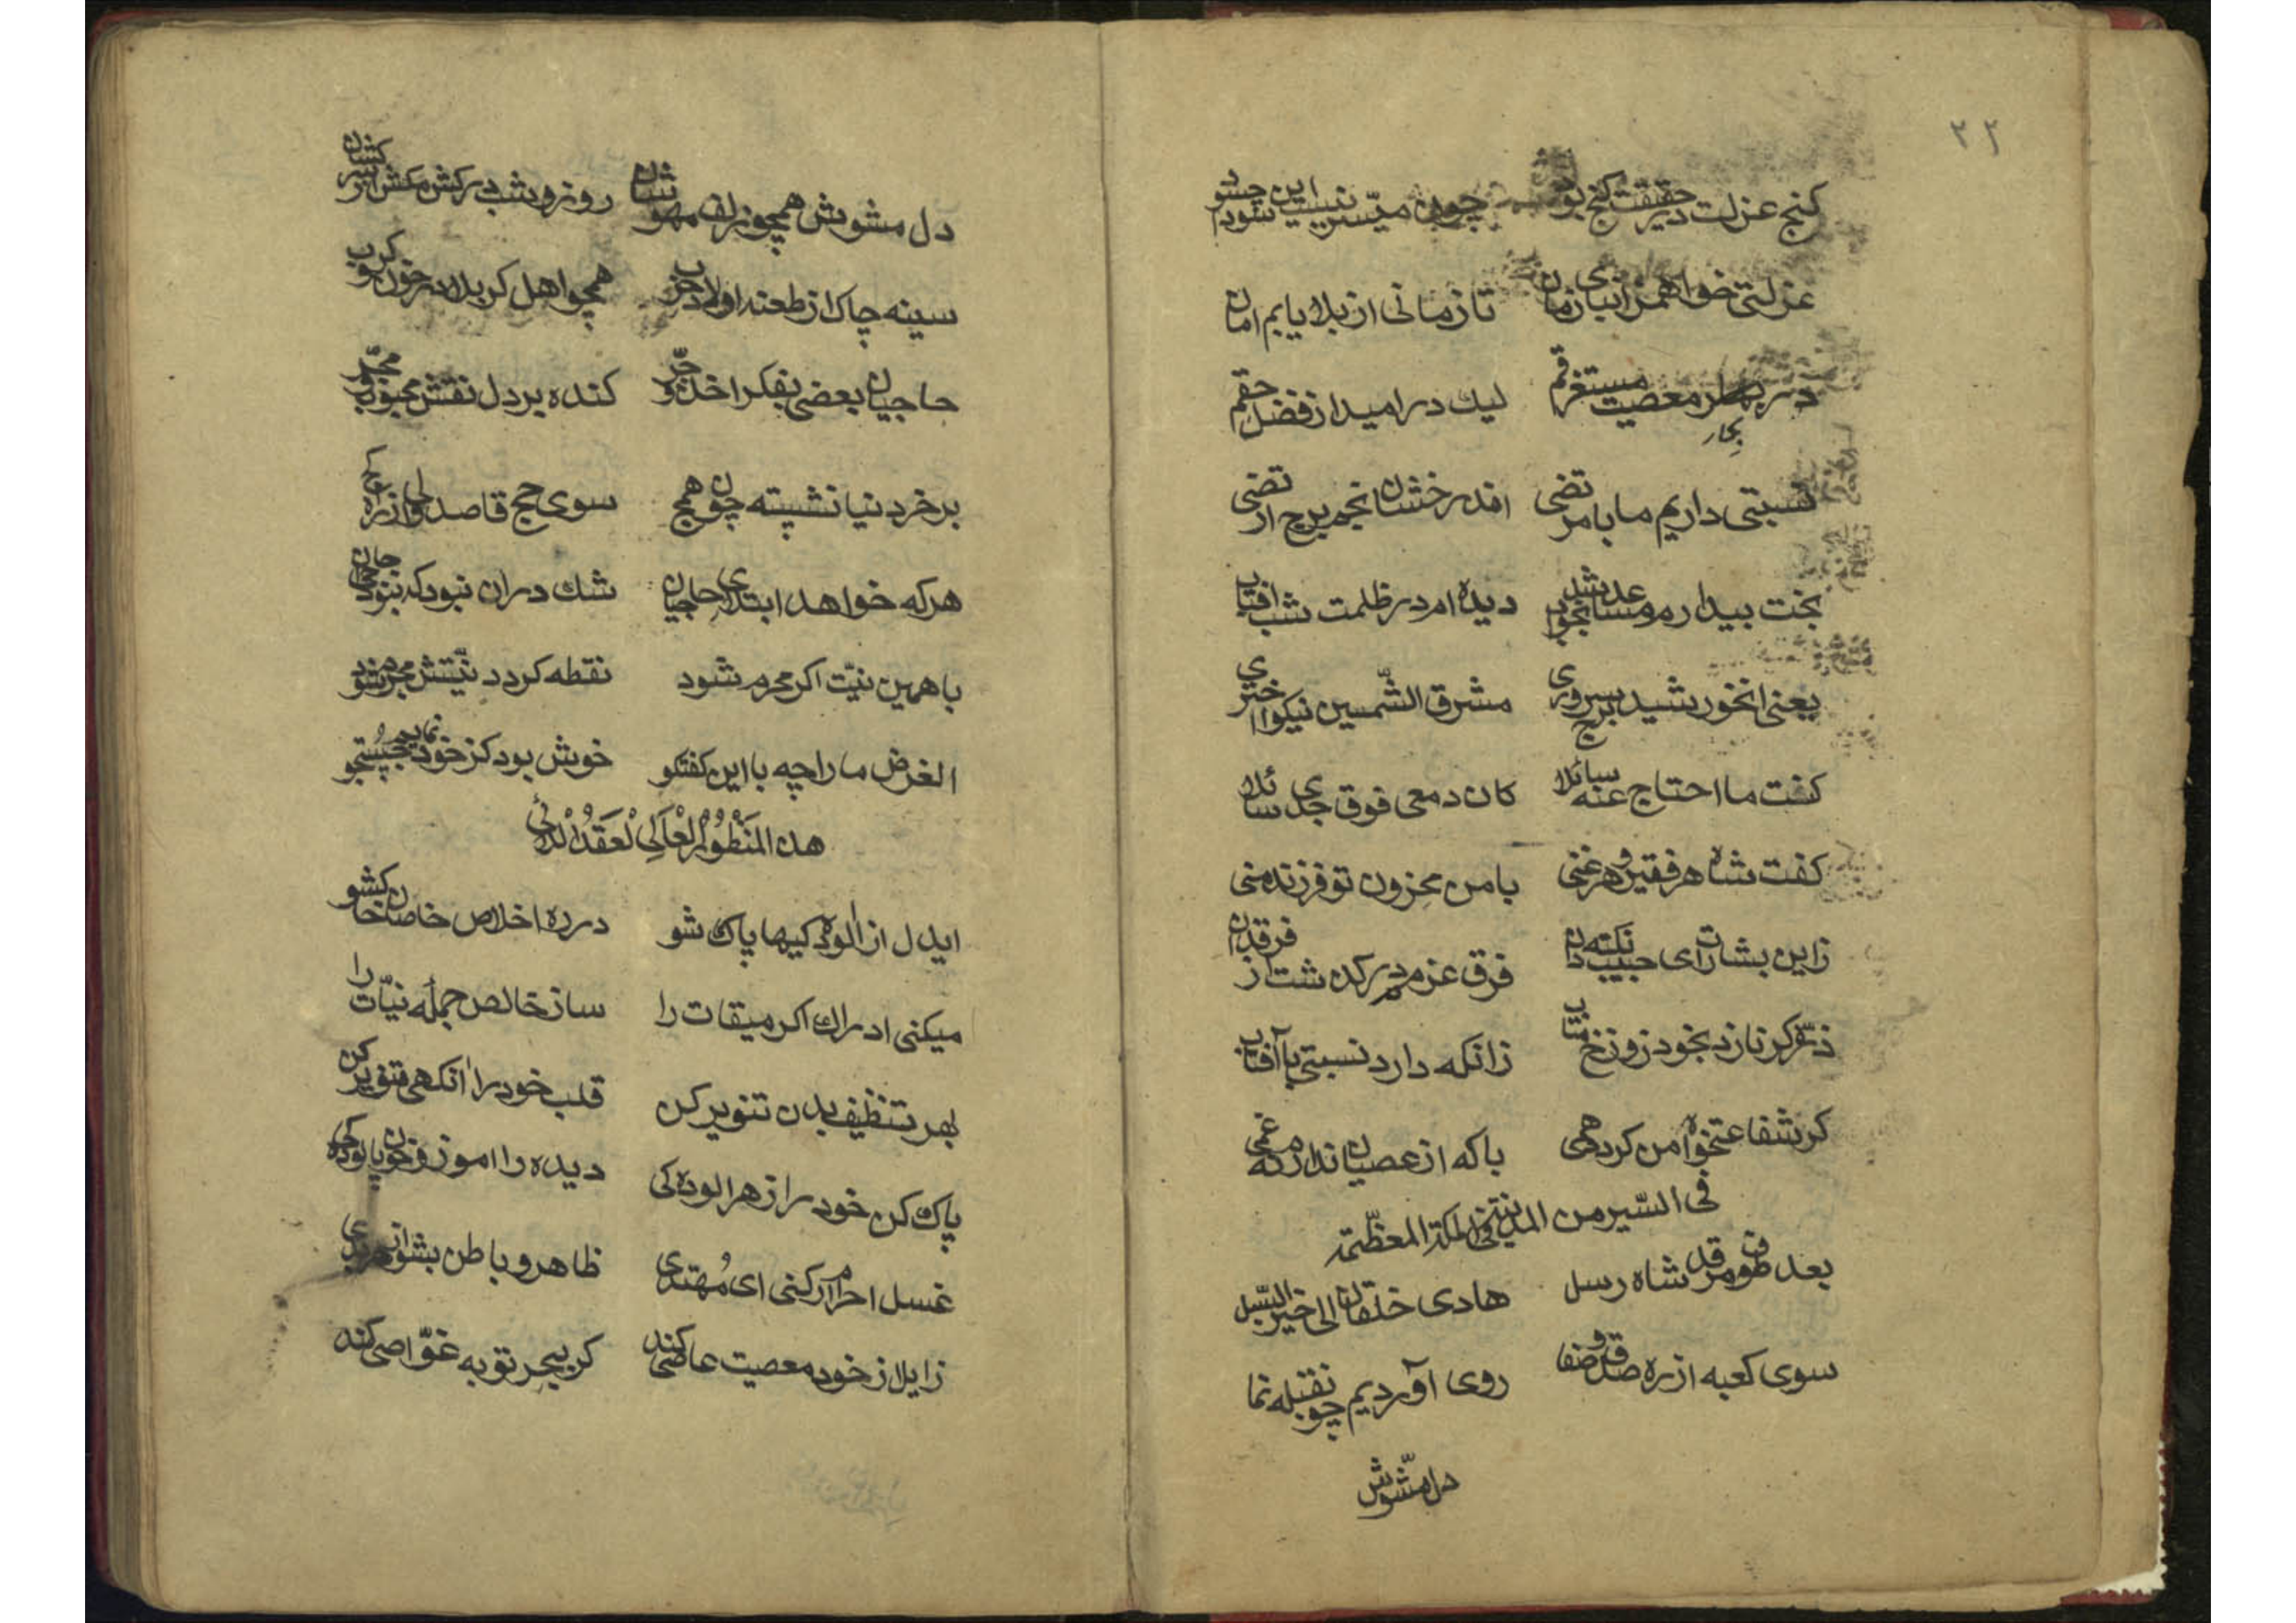 ۲۲
کنج عزلت در حقیقت کنج بود چون میسّر نیست این چشود
عزلتی خواهم زابنای زمان تا زمانی از بلا یابم امان
در بحار معصیت مستغرقم لیك در امید از فضل حقم
نسبتی داریم ما با مرتضی افدرخشان انجم برج ارتضی
بخت بیدارم مساعد شد بخواب دیده ام در ظلمت شب افتاب
یعنی انخورشید برج سروری مشرق الشّمسین نیکو اختری
کفت ما احتاج عنه سائلا کان دمعی فوق خدی سائلا
کفت شاه هر فقیر و هر غنی با من محزون تو فرزند منی
زاین بشارت ای حبیب نکته دان فرق عزم در کذشت از فرقدان
ذرّه کر نازد بخود زو رخ متاب زانکه دارد نسبتی با آفتاب
کر شفاعتخواه من کردهمی باکه از عصیان ندارم غمی
فی السّیر من المدینة الی المکة المعظّمة
بعد طوف مرقد شاه رسل هادی خلقان الی خیر السّبل
سوی کعبه از ره صدق و صفا روی آوردیم چو نقبله نما
دل مشّوش
دل مشوش همچو زلف مهوشان روز و شب در کش مکش از سرکشان
سینه چاك از طعنه اولاد حرب همچو اهل کربلا در خون کرب
حاجیان بعضی بفکر اخذ و جرّ کنده بر دل نقش محبوب
بر خر دنیا نشیته چون همج سوی حج قاصد ولی از راه
هرکه خواهد ابتدای حاجیان شك دران نبود که نبود
با همین نیّت اکر محرم شود نقطه کردد نیّتش مجرم شود
الغرض ما را چه با این کفتکو خوش بود کز خود نمایم جستجو
هذه المنظور العالی لعقد اللالی
ایدل از الوده کیها پاك شو در ره اخلاص خاصان خاك شو
میکنی ادراك اکر میقات را ساز خالص جمله نیّات را
بهر تنظیف بدن تنویر کن قلب خود را انکهی تنویر کن
پاك کن خود را از هر الوده کی دیده را اموز و خون پالوده کی
غسل احرام ار کنی ای مُهتدی ظاهر و باطن بشو از هر بدی
زایلا از خود معصیت عاصی کند کر ببحر توبه غوّاصی کند